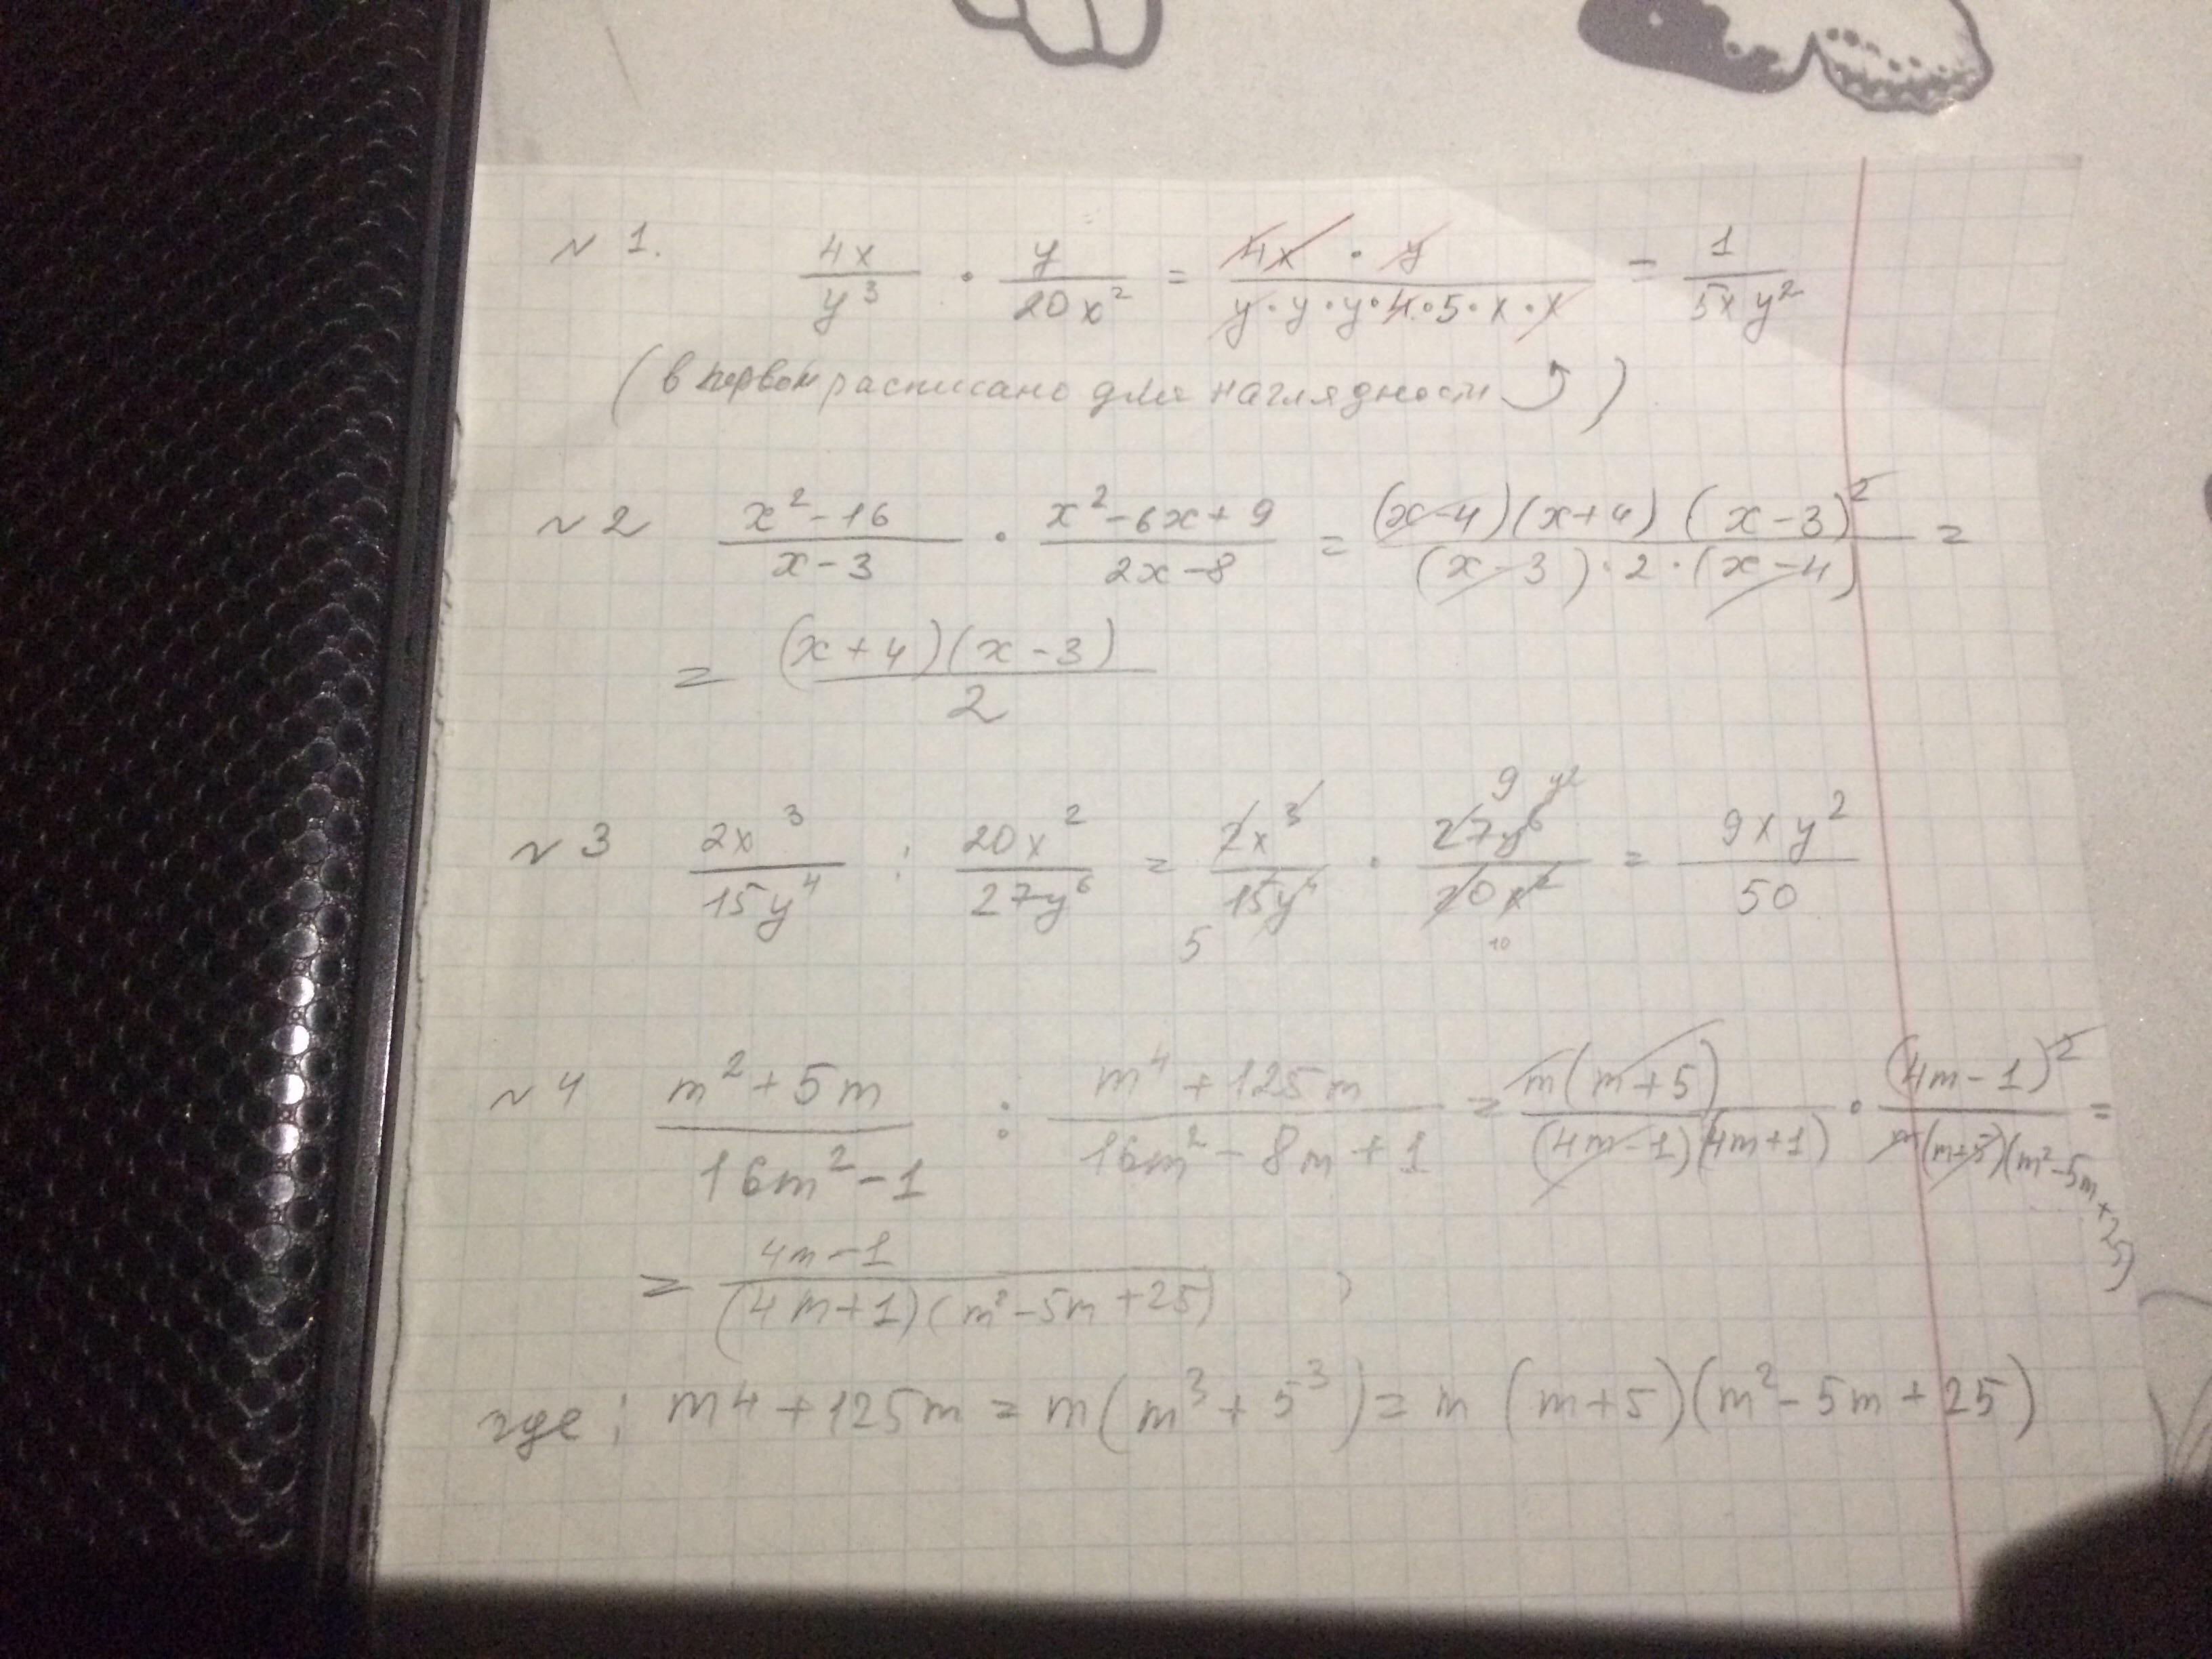 N 1. 4x/y³ · y/20x² = 4x · y/y·y·y·4·5·x·x = 1/5xy²
(в первом расписано для наглядности ⤴)
N 2 x²-16/x-3 · x²-6x+9/2x-8 = (x-4)(x+4)(x-3)²/(x-3)·2·(x-4) =
= (x+4)(x-3)/2
N 3 2x³/15y⁴ : 20x²/27y⁶ = 2x³/15y⁴ 5 · 9 y² 27y⁶/20x² 10 = 9xy²/50
N 4 m²+5m/16m²-1 : m⁴+125m/16m²-8m+1 = m(m+5)/(4m-1)(4m+1) · (4m-1)²/m(m+5)(m²-5m+25) =
= 4m-1/(4m+1)(m²-5m+25) ,
где: m4+125m = m(m³+5³) = m (m+5)(m²-5m+25)